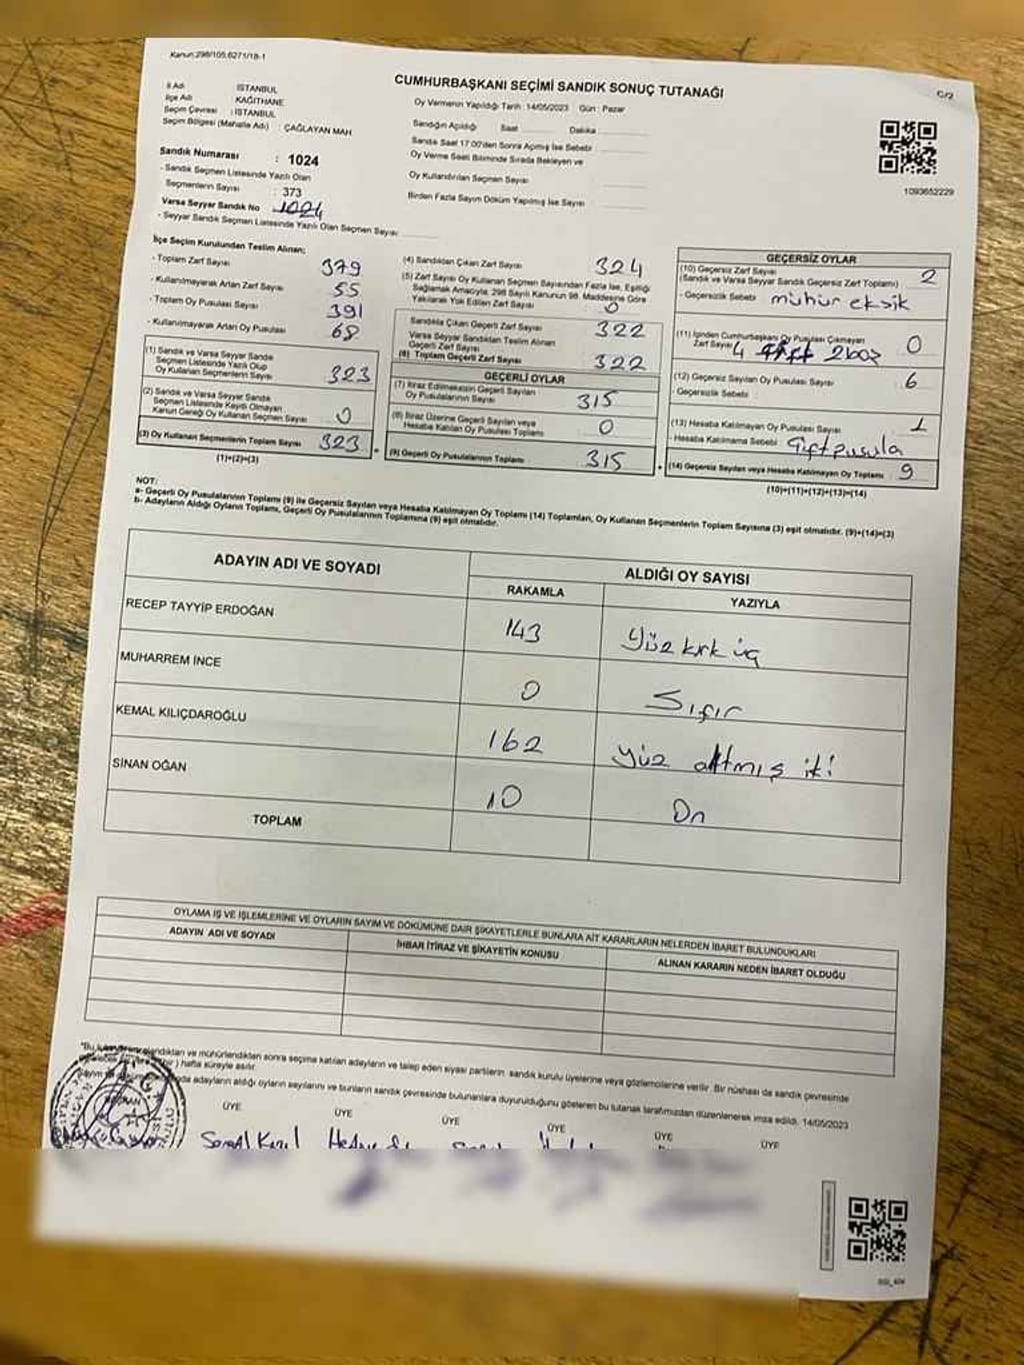 Kanun:298/105,6271/18-1
CUMHURBAŞKANI SEÇİMİ SANDIK SONUÇ TUTANAĞI
C/2
İl Adı : İSTANBUL
İlçe Adı : KAĞITHANE
Seçim Çevresi : İSTANBUL
Seçim Bölgesi (Mahalle Adı) : ÇAĞLAYAN MAH
Sandık Numarası : 1024
- Sandık Seçmen Listesinde Yazılı Olan
Seçmenlerin Sayısı : 373
Varsa Seyyar Sandık No 1024
- Seyyar Sandık Seçmen Listesinde Yazılı Olan Seçmen Sayısı
Oy Vermenin Yapıldığı Tarih : 14/05/2023 Gün : Pazar
Sandığın Açıldığı Saat Dakika
Sandık Saat 17:00'den Sonra Açılmış İse Sebebi
Oy Verme Saati Bitiminde Sırada Bekleyen ve
Oy Kullandırılan Seçmen Sayısı
Birden Fazla Sayım Döküm Yapılmış İse Sayısı
1093652229
İlçe Seçim Kurulundan Teslim Alınan;
- Toplam Zarf Sayısı 379
- Kullanılmayarak Artan Zarf Sayısı 55
- Toplam Oy Pusulası Sayısı 391
- Kullanılmayarak Artan Oy Pusulası 68
(1) Sandık ve Varsa Seyyar Sandık
Seçmen Listesinde Yazılı Olup
Oy Kullanan Seçmenlerin Sayısı 323
(2) Sandık ve Varsa Seyyar Sandık
Seçmen Listesinde Kayıtlı Olmayan
Kanun Gereği Oy Kullanan Seçmen Sayısı 0
(3) Oy Kullanan Seçmenlerin Toplam Sayısı 323
(1)+(2)=(3)
(4) Sandıktan Çıkan Zarf Sayısı 324
(5) Zarf Sayısı Oy Kullanan Seçmen Sayısından Fazla İse, Eşitliği
Sağlamak Amacıyla; 298 Sayılı Kanunun 98. Maddesine Göre
Yakılarak Yok Edilen Zarf Sayısı 0
Sandıkta Çıkan Geçerli Zarf Sayısı 322
Varsa Seyyar Sandıktan Teslim Alınan
Geçerli Zarf Sayısı
(6) Toplam Geçerli Zarf Sayısı 322
GEÇERLİ OYLAR
(7) İtiraz Edilmeksizin Geçerli Sayılan
Oy Pusulalarının Sayısı 315
(8) İtiraz Üzerine Geçerli Sayılan veya
Hesaba Katılan Oy Pusulası Toplamı 0
(9) Geçerli Oy Pusulalarının Toplamı 315
GEÇERSİZ OYLAR
(10) Geçersiz Zarf Sayısı 2
(Sandık ve Varsa Seyyar Sandık Geçersiz Zarf Toplamı)
- Geçersizlik Sebebi mühür eksik
(11) İçinden Cumhurbaşkanı Oy Pusulası Çıkmayan
Zarf Sayısı 0
(12) Geçersiz Sayılan Oy Pusulası Sayısı 6
Geçersizlik Sebebi :
(13) Hesaba Katılmayan Oy Pusulası Sayısı 1
- Hesaba Katılmama Sebebi Çift pusula
(14) Geçersiz Sayılan veya Hesaba Katılmayan Oy Toplamı 9
(10)+(11)+(12)+(13)=(14)
NOT:
a- Geçerli Oy Pusulalarının Toplamı (9) ile Geçersiz Sayılan veya Hesaba Katılmayan Oy Toplamı (14) Toplamları, Oy Kullanan Seçmenlerin Toplam Sayısına (3) eşit olmalıdır. (9)+(14)=(3)
b- Adayların Aldığı Oyların Toplamı, Geçerli Oy Pusulalarının Toplamına (9) eşit olmalıdır.
ADAYIN ADI VE SOYADI
ALDIĞI OY SAYISI
RAKAMLA YAZIYLA
RECEP TAYYİP ERDOĞAN 143 Yüz kırk üç
MUHARREM İNCE 0 Sıfır
KEMAL KILIÇDAROĞLU 162 Yüz altmış iki
SİNAN OĞAN 10 On
TOPLAM
OYLAMA İŞ VE İŞLEMLERİNE VE OYLARIN SAYIM VE DÖKÜMÜNE DAİR ŞİKAYETLERLE BUNLARA AİT KARARLARIN NELERDEN İBARET BULUNDUKLARI
ADAYIN ADI VE SOYADI
İHBAR İTİRAZ VE ŞİKAYETİN KONUSU
ALINAN KARARIN NEDEN İBARET OLDUĞU
ve mühürlendikten sonra seçime katılan adayların ve talep eden siyasi partilerin sandık kurulu üyelerine veya gözlemcilerine verilir. Bir nüshası da sandık çevresinde
hafta süreyle asılır.
adayların aldığı oyların sayılarını ve bunların sandık çevresinde bulunanlara duyurulduğunu gösteren bu tutanak tarafımızdan düzenlenerek imza edildi. 14/05/2023
ÜYE ÜYE ÜYE ÜYE ÜYE ÜYE